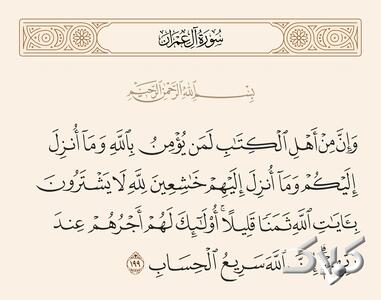 سُورَةُ آلِ عِمْرَان
بِسْمِ اللَّهِ الرَّحْمَٰنِ الرَّحِيمِ
وَإِنَّ مِنْ أَهْلِ الْكِتَابِ لَمَن يُؤْمِنُ بِاللَّهِ وَمَا أُنزِلَ
إِلَيْكُمْ وَمَا أُنزِلَ إِلَيْهِمْ خَاشِعِينَ لِلَّهِ لَا يَشْتَرُونَ
بِآيَاتِ اللَّهِ ثَمَنًا قَلِيلًا ۗ أُولَٰئِكَ لَهُمْ أَجْرُهُمْ عِندَ
إِنَّ اللَّهَ سَرِيعُ الْحِسَابِ ١٩٩